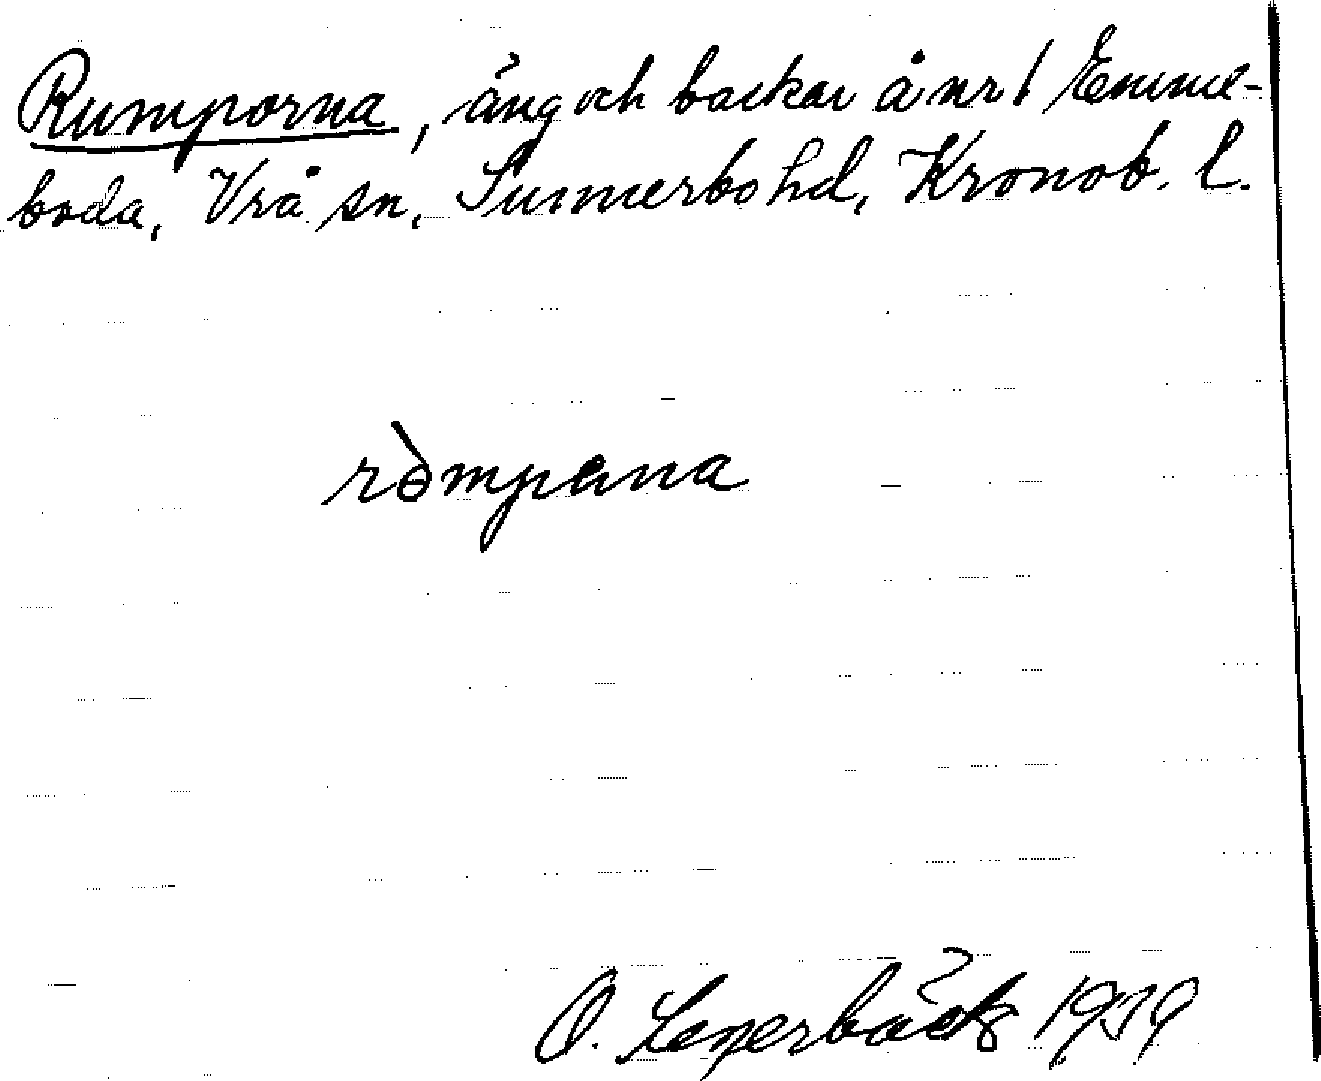 Rumporna, äng och backar å nr 1 Emme-
boda, Vrå sn, Sunnerbo hd, Kronob. l.
ròmpena
O. 1939